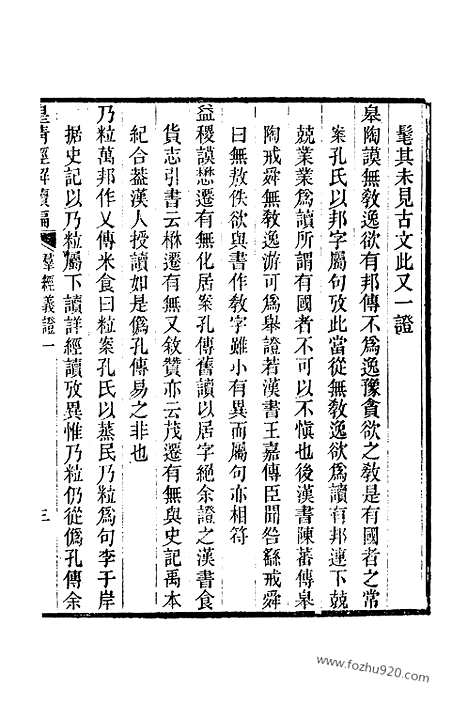 髦其未見古文此又一證
皋陶謨無敎逸欲有邦傳不爲逸豫貪欲之敎是有國者之常
案孔氏以邦字屬句攷此當從無敎逸欲爲讀有邦連下兢
兢業業爲讀所謂有國者不可以不愼也後漢書陳蕃傳皋
陶戒舜無敎逸游可爲舉證若漢書王嘉傳臣聞咎繇戒舜
曰無敖佚欲與書作敎字雖小有異而屬句亦相符
益稷謨懋遷有無化居案孔傳舊讀以居字絕余證之漢書食
貨志引書云楙遷有無又敘贊亦云茂遷有無與史記禹本
紀合葢漢人授讀如是僞孔傳易之非也
乃粒萬邦作乂傳米食曰粒案孔氏以蒸民乃粒爲句李于岸
据史記以乃粒屬下讀詳經讀攷異惟乃粒仍從僞孔傳余
皇清經解續編
羣經義證一
三
www.fozhu920.com